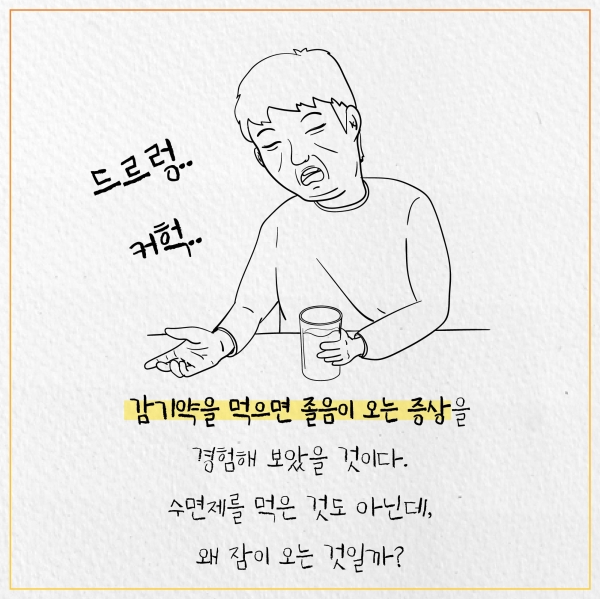 드르렁..
커헉..
감기약을 먹으면 졸음이 오는 증상을
경험해 보았을 것이다.
수면제를 먹은 것도 아닌데,
왜 잠이 오는 것일까?